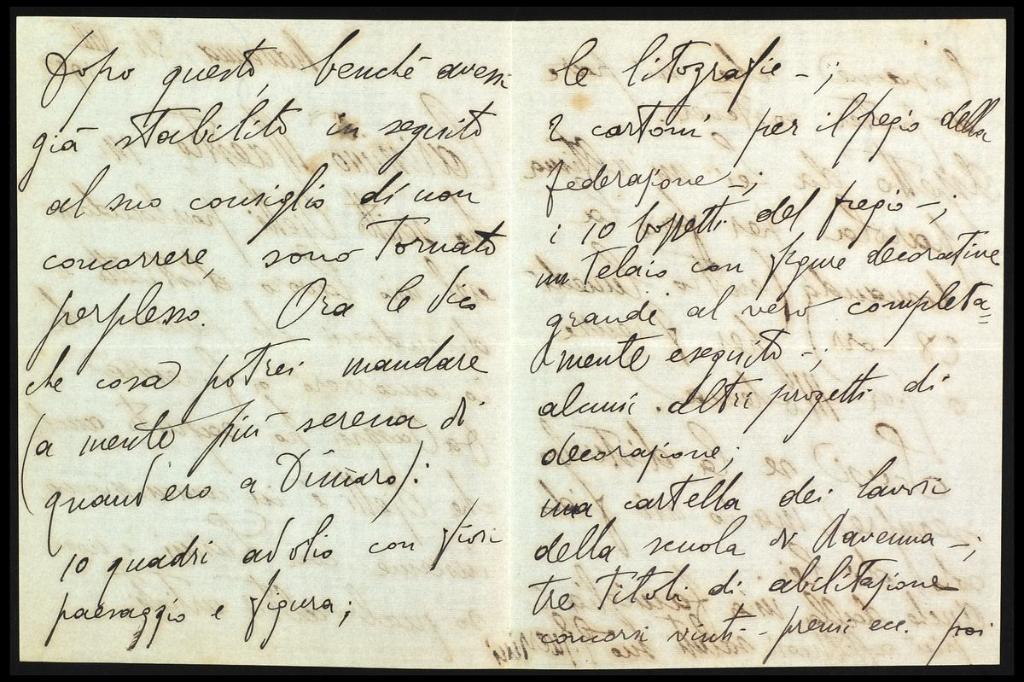 Dopo questo, benchè avessi
già stabilito in seguito
al suo consiglio di non
concorrere, sono tornato
perplesso. Ora le dico
che cosa potrei mandare
(a mente più serena di
quand'ero a Dimaro):
10 quadri ad olio con fiori
paesaggio e figura;
le litografie -;
2 cartoni per il fregio della
federazione -;
i 10 bozzetti del fregio -;
un telaio con figure decorative
grandi al vero completa=
mente eseguito -;
alcuni altri progetti di
decorazione;
una cartella dei lavori
della scuola di Ravenna -;
tre titoli di abilitazione
concorsi vinti - premi ecc. poi